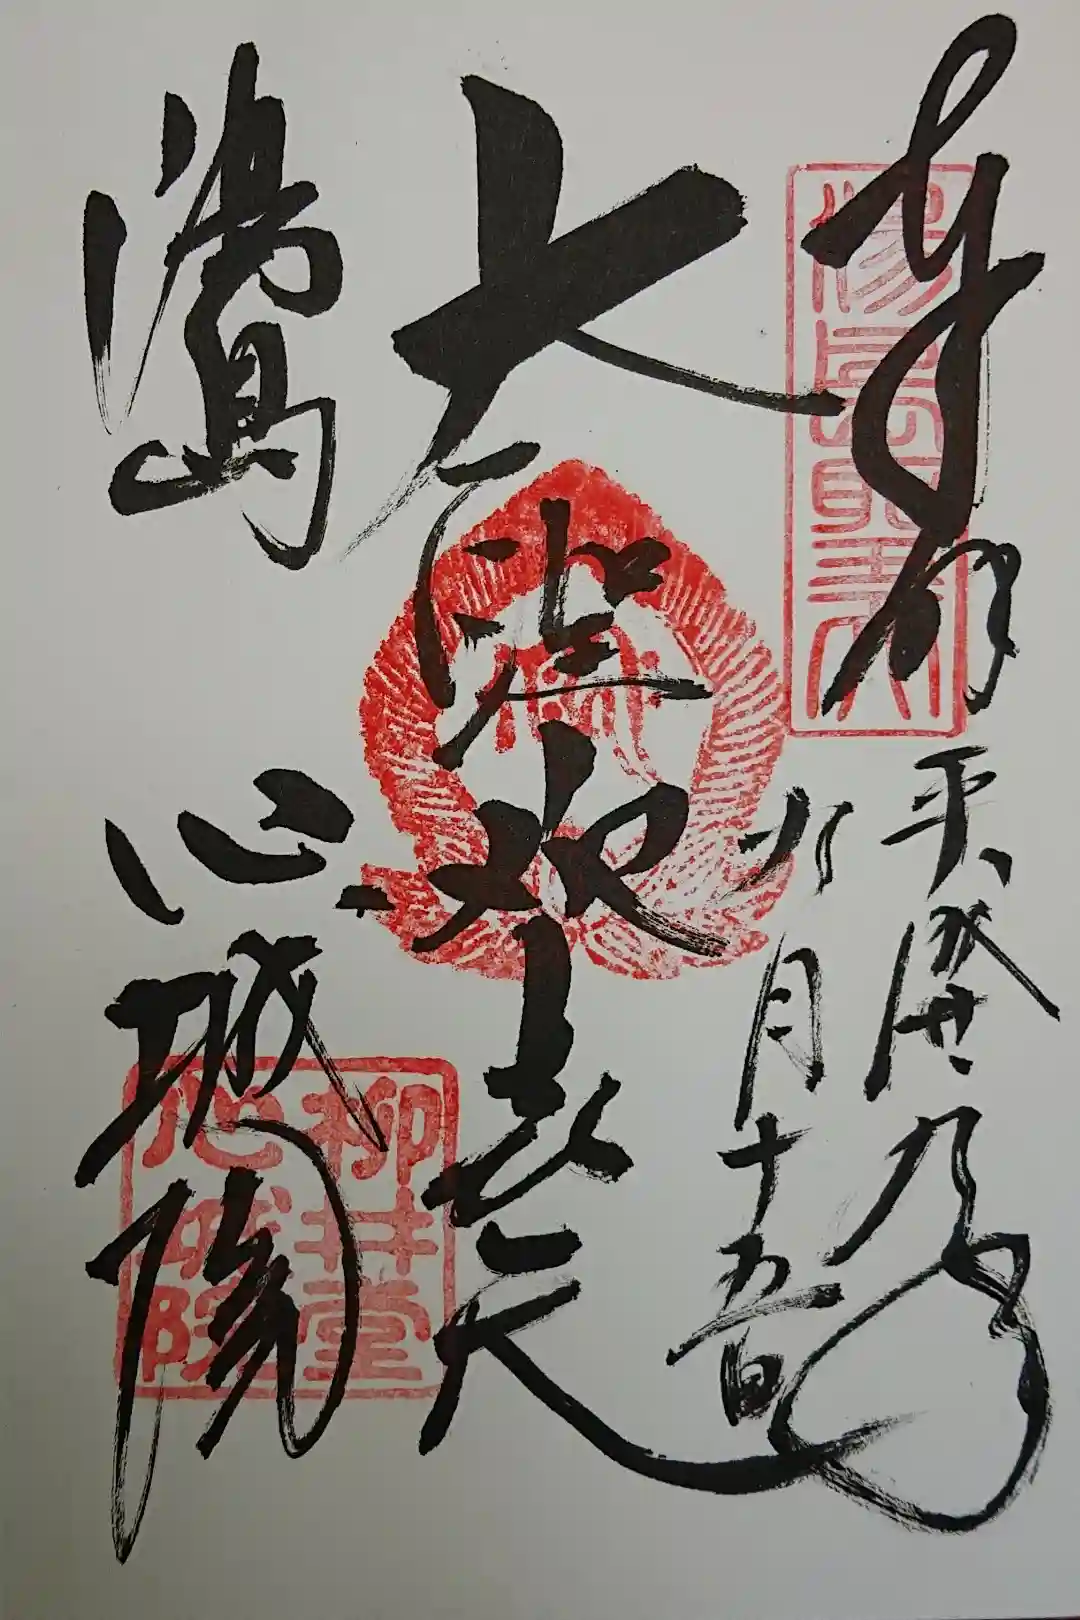 奉拝
平成廿九年
九月十五日
大聖歓喜天
湯島
心城院
柳井堂
心城院